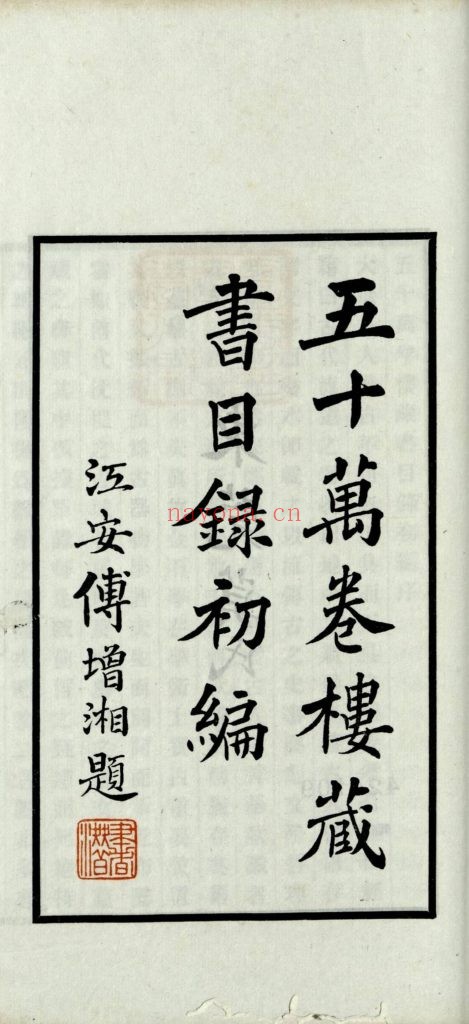 五十萬卷樓藏
書目録初編
江安傅增湘題
nayona.cn